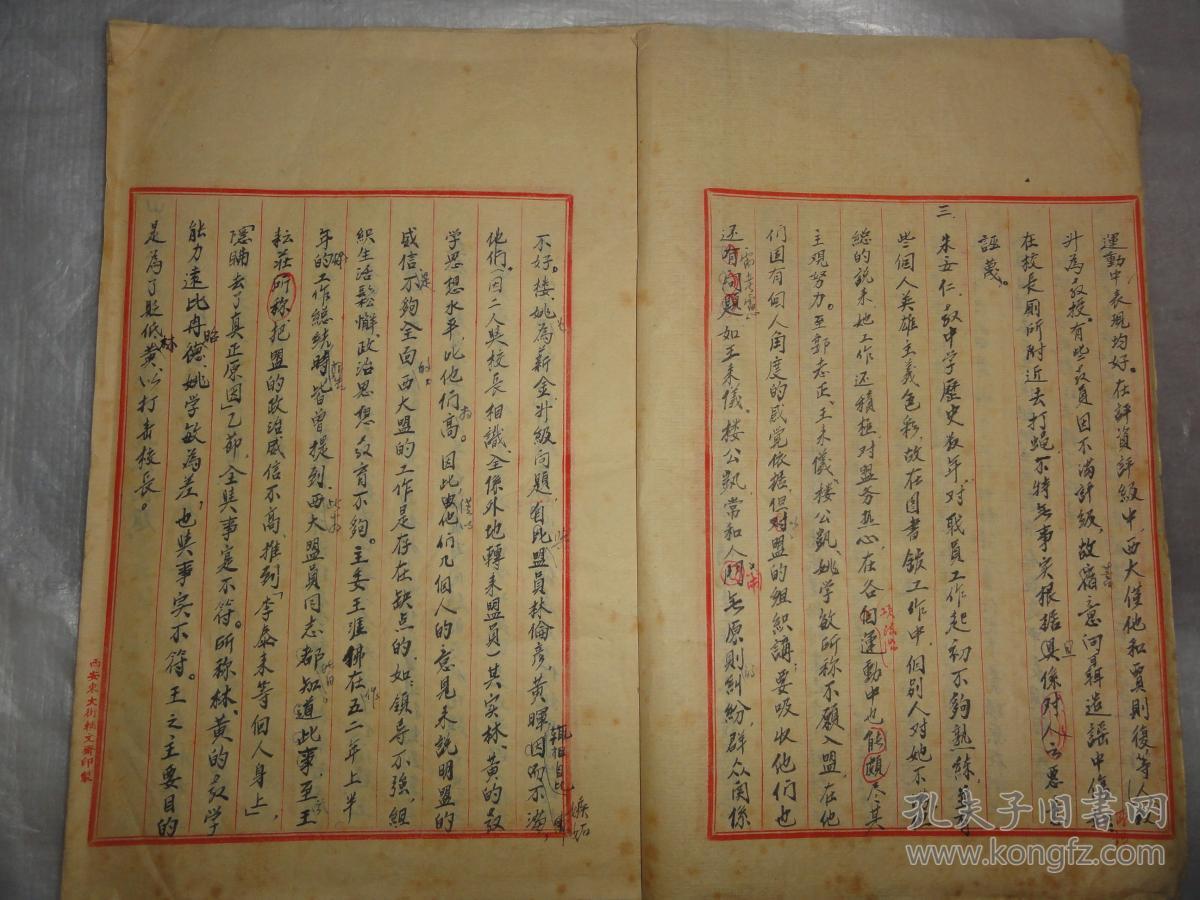 運動中表現均好。在評資評級中，西大僅他和賈則復等
升為教授。有些教員因不滿評級，故 意 造謠中傷
在校長厠所附近去打蠅，不特無事實根据，具係对人 惡意
誣蔑。
三. 朱安仁、教中学歷史数年，对職員工作起初不够熟練，並有
些個人英雄主義色彩，故在图書館工作中，個别人对她不
總的說来她工作还積極对盟务热心，在各個運動中也能 尽其
主观努力。至郭志正、王耒儀、楼公凱、姚学敏所称不願入盟，在他
們固有個人角度的感觉依据但对盟的組織講：要吸收他們也
还有問題如王耒儀。楼公凱，常和人鬧無原則糾紛，群众関係
不好。楼、姚為薪金升級问題，自比盟員林倫彦，黄暉因而不滿
他們。（因二人與校長相識，全係外地轉来盟員）其实林、黄的教
学思想水平，比他們高。因此 他們几個人的意見来說明盟的
威信不夠全面，西大盟的工作是存在缺点的，如：領导不强，組
織生活鬆懈，政治思想教育不夠。主委王涯佛在五二年上半
年的工作總结時，皆曾提到，西大盟員同志都知道此事，至王
耘莊所称把盟的政治威信不高，推到「李泰来等個人身上」，
「隱瞞去了真正原因」乙節，全與事实不符。所称林、黄的教学
能力遠比冉昭德、姚学敏為差，也與事实不符。王之主要目的
是為了貶低黄、林以打击校長。
輒相自比
嫉妬
西安東大街 文齋印製
孔夫子旧书网
www.kongfz.com